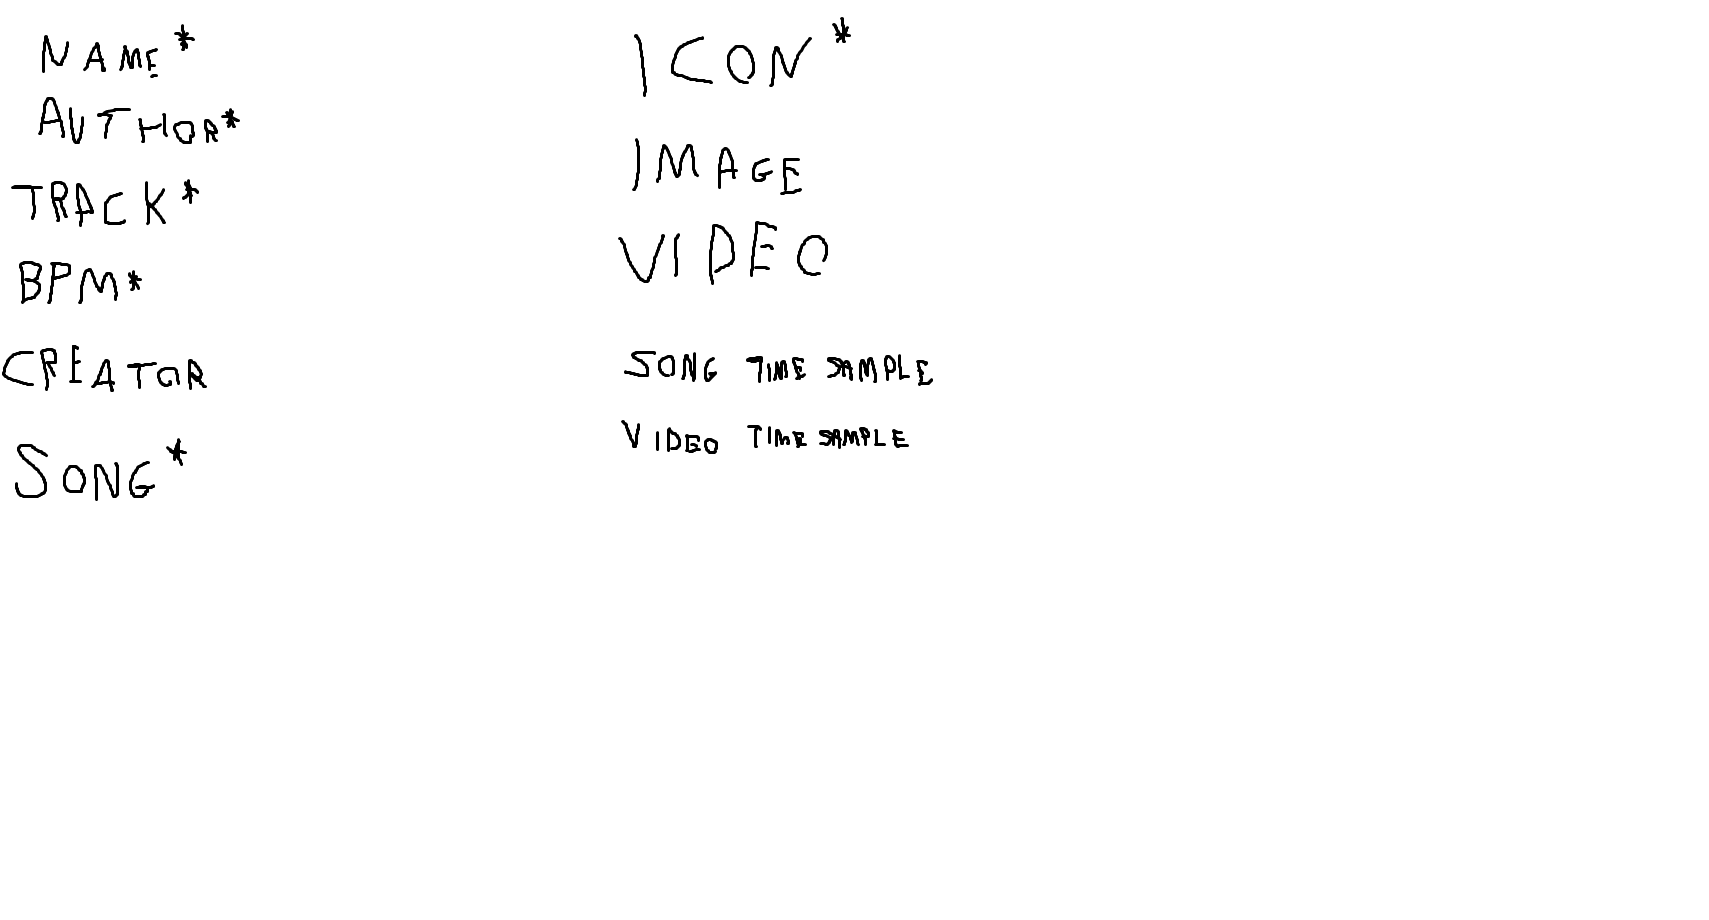 NAME*
AUTHOR*
TRACK*
BPM*
CREATOR
SONG*
ICON*
IMAGE
VIDEO
SONG TIME SAMPLE
VIDEO TIME SAMPLE